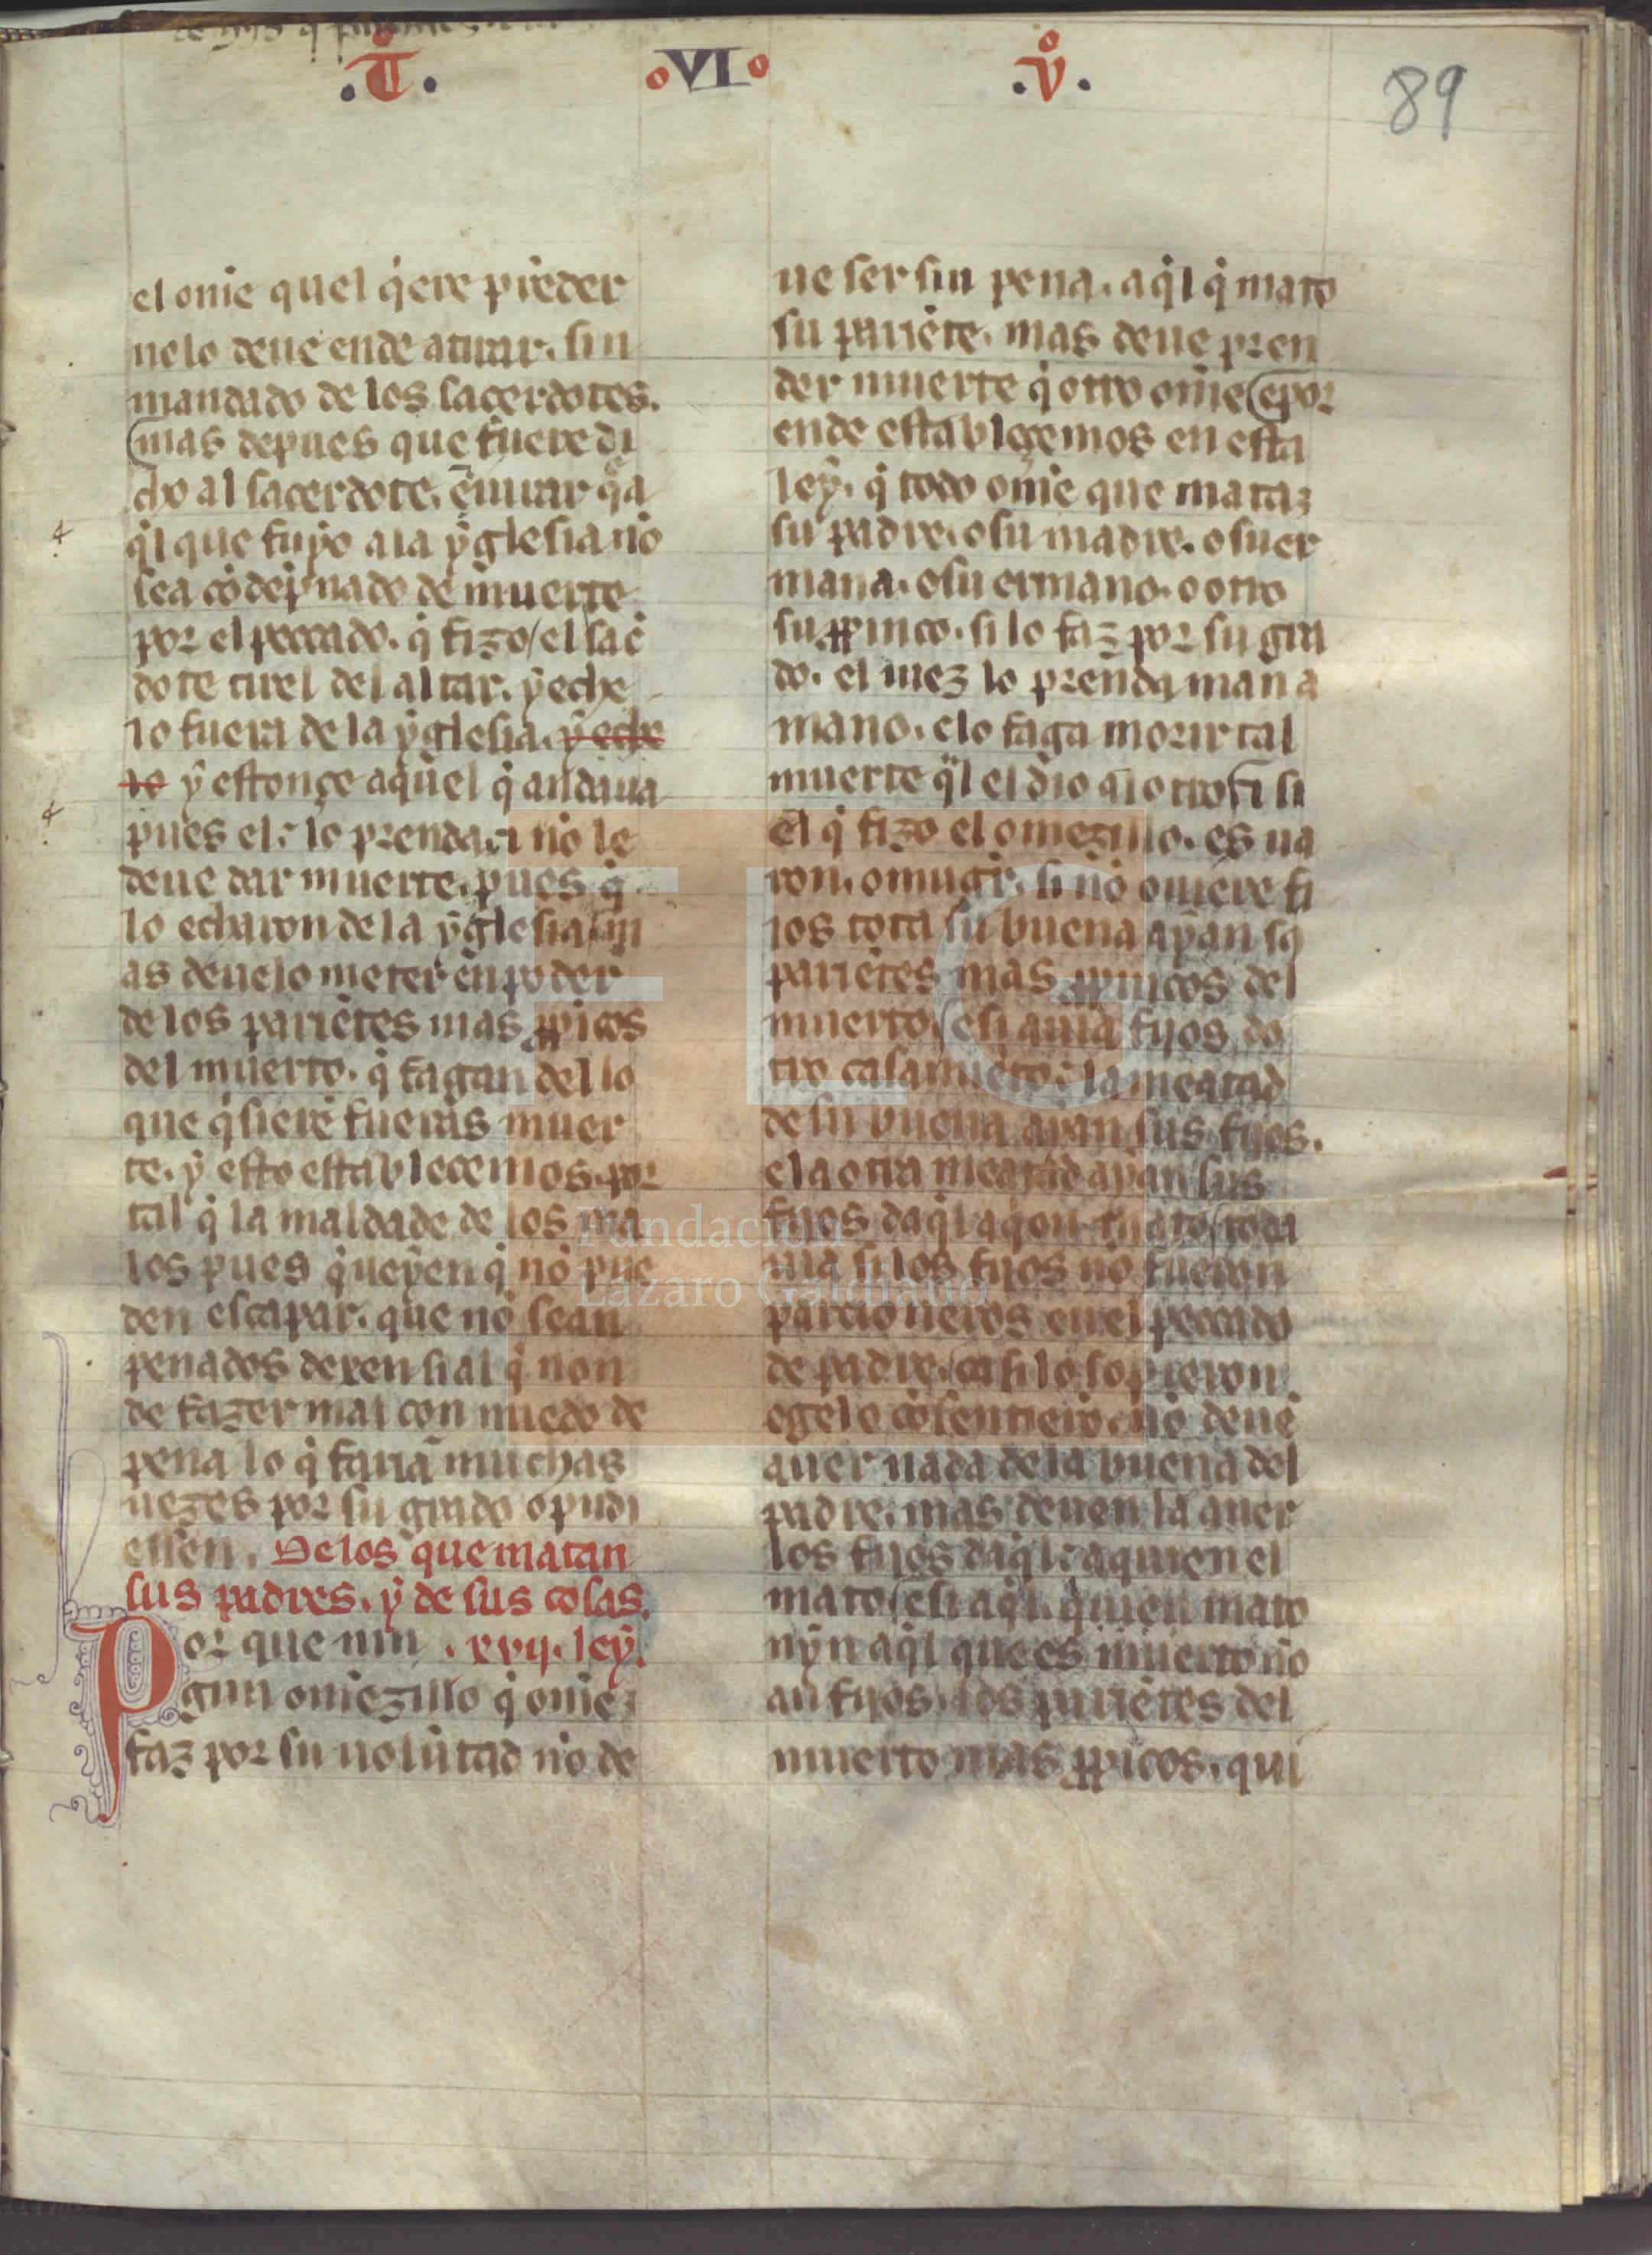 .T. VI .v.
89
el om̃e quel q̇ere prẽder
nolo deue ende aturar. sin
mandado de los sacerdotes.
mas depues que fuere di
cho al sacerdote. e iurar q̃ a
q̇l que fuyo ala yglesia nõ
sea cõdepnado de muerte
por el peccado. q̇ fizo el sac̃
dote tirel del altar. y eche
lo fuera de la yglesia. y eche
lo y estonçe aquel q̇ andaua
pues el. lo prenda. i nõ le
deue dar muerte. pues q̇
lo echaron de la yglesia. m
as deuelo meter en poder
de los pariẽtes mas ꝓpĩcos
del muerto. q̇ fagan del lo
que q̇sierẽ fueras muer
te. y esto establecemos. por
tal q̇ la maldade de los ma
los pues q̇ ueyen q̇ nõ pue
den escapar. que nõ sean
penados dexen sial q̇ non
de fazer mal con miedo de
pena lo q̇ fariã muchas
uezes por su grado o pudi
essen. De los que matan
sus padres. y de sus cosas.
Por que nin .xvij. ley.
gun omezillo q̇ om̃e
faz por su uolũtad nõ de
ue ser sin pena. aq̇l q̇ mato
su pariẽte. mas deue pren
der muerte q̇ otro om̃e e por
ende estableçemos en esta
ley. q̇ todo om̃e que mata
su padre. o su madre. o su er
mana. o su ermano. o otro
su ꝓpinco. si lo faz por su gra
do. el iuez lo prenda man a
mano. e lo faga morir tal
muerte q̃l el dio al otro si
el q̇ fizo el omezillo. es ua
ron. o mugr̃. si nõ ouiere fi
ios tota su buena ayan sq̃
pariẽtes mas ꝓpincos del
muerto e si auia fijos do
tro casamiẽto. la meatad
de su buena ayan sus fijos.
e la otra meatad ayan sus
fijos daq̇l a qon mato toda
uia si los fijos nõ fueron
parcioneros en el peccado
de padre. ca si lo sopieron
e gelo cõsentierõ. nõ deuẽ
auer nada de la buena del
padre. mas deuen la auer
los fijos daq̇l. a quien el
mato e si aq̇l. quien mato
nyn aq̇l que es muerto nõ
an fijos. los pariẽtes del
muerto mas ꝓpĩcos. qui
Fundación
Lázaro Galdiano